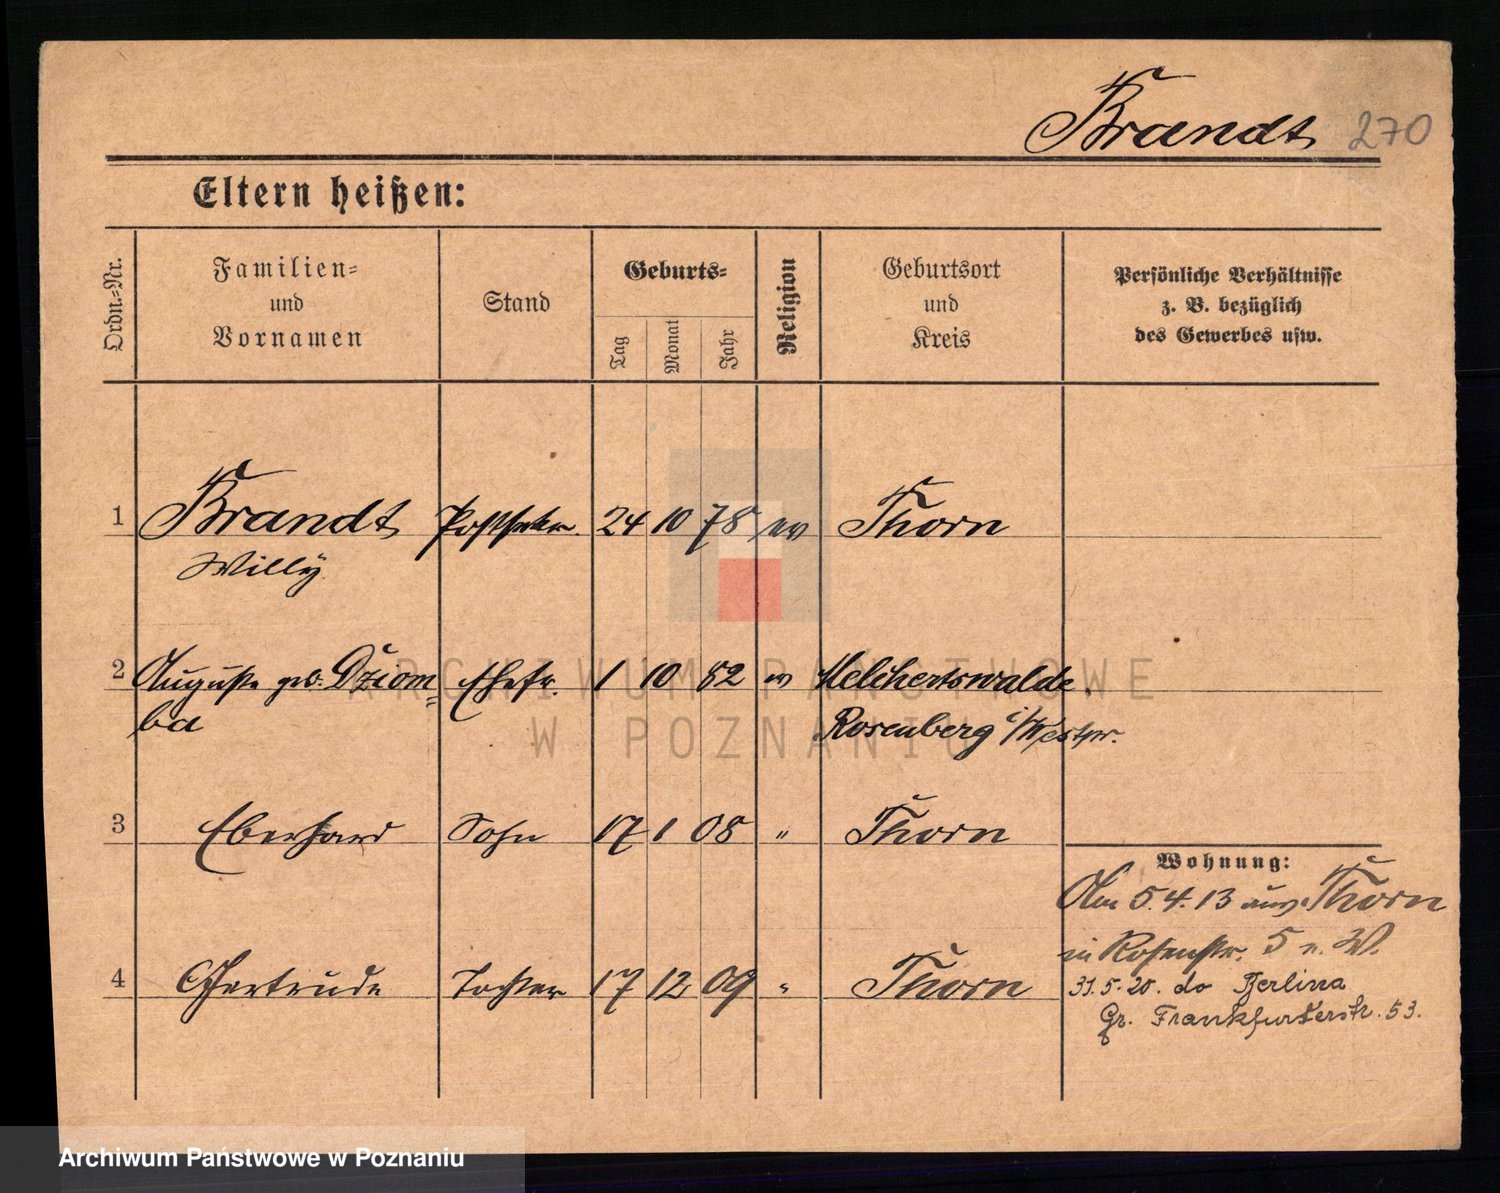 Brandt 270
Eltern heißen:
Ordn.-Nr.
Familien-
und
Vornamen
Stand
Geburts-
Tag
Monat
Jahr
Religion
Geburtsort
und
Kreis
Persönliche Verhältnisse
z. B. bezüglich
des Gewerbes usw.
1 Brandt Postsekr. 24 10 78 ev Thorn
Willy
2 Auguste geb. Dziom= Ehefr. 1 10 82 ev Melchertswalde
ba Rosenberg i/Westpr.
3 Eberhard Sohn 17 1 08 " Thorn
Wohnung:
Am 5.4.13 aus Thorn
in Rosenstr. 5 n. W.
4 Gertrude Tochter 17 12 09 " Thorn
31.5.20. do Berlina
Gr. Frankfurterstr. 53.
ARCHIWUM PAŃSTWOWE
W POZNANIU
Archiwum Państwowe w Poznaniu